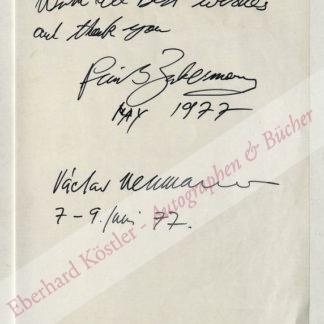 With all best wishes
and thank you
Pinchas Zukerman
MAY 1977
Václav Neumann
7-9. Juni 77.
Eberhard Köstler - Autographen & Bücher